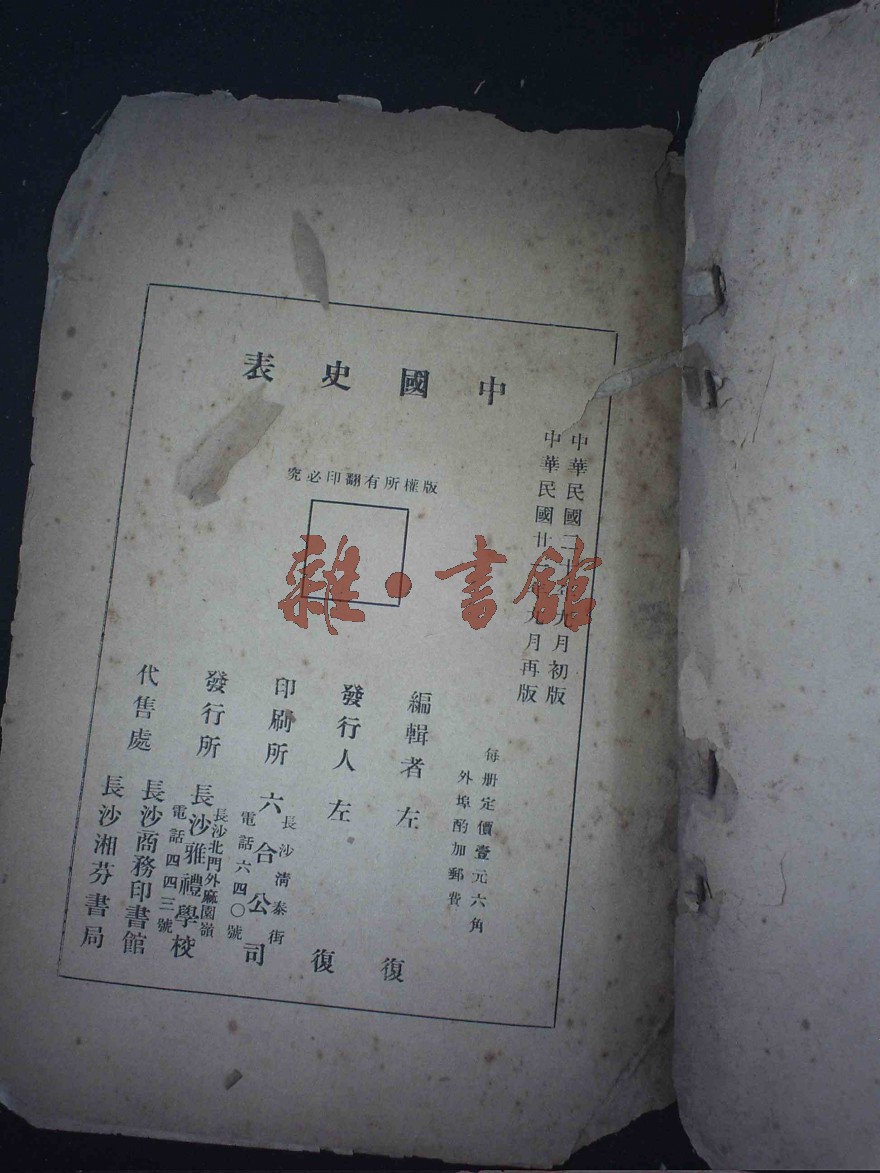 中國史表
中華民國二十年九月初版
中華民國廿一年九月再版
版權所有翻印必究
每册定價壹元六角
外埠酌加郵費
編輯者 左復
發行人 左復
印刷所 六合公司
長沙清泰街
電話六四〇號
發行所 長沙雅禮學校
長沙北門外麻園嶺
電話四四三號
代售處 長沙商務印書館
長沙湘芬書局
雜·書館